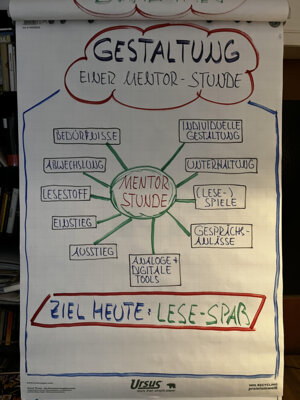 GESTALTUNG
EINER MENTOR-STUNDE
BEDÜRFNISSE
INDIVIDUELLE
GESTALTUNG
ABWECHSLUNG
UNTERHALTUNG
MENTOR
STUNDE
LESESTOFF
(LESE-)
SPIELE
EINSTIEG
GESPRÄCHS-
ANLÄSSE
AUSSTIEG
ANALOGE +
DIGITALE
TOOLS
ZIEL HEUTE: LESE-SPAß
Ursus